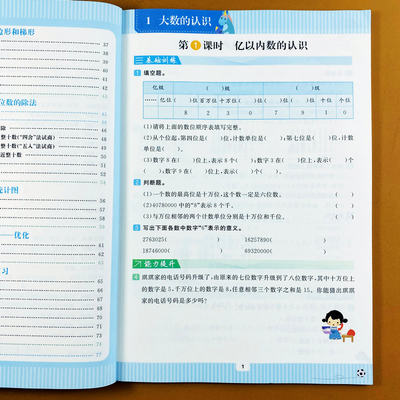 边形和梯形
37
38
40
41
42
44
45
位数的除法
46
除
整十数("四舍"法试商)
整十数("五入"法试商)
近整十数)
统计图
——优化
复习
1 大数的认识
第1课时 亿以内数的认识
基础训练
1 填空题。
亿级 ( )级 ( )级
…… 亿位 ( )位 百万位 十万位 ( )位 ( )位 ( )位 十位 个位
8 2 3 0 7 9 1 0
(1)请将上面的数位顺序表填写完整。
(2)从个位起,第四位是( )位,计数单位是( );第七位是( )位,计数
单位是( )。
(3)数字8在( )位上,表示8个( );数字3在( )位上,表示( )个
( );数字7在( )位上,表示( )个( )。
2 判断题。
(1)一个数的最高位是十万位,这个数一定是六位数。 ( )
(2)40780000中的"8"表示8个千。 ( )
(3)与万位相邻的两个计数单位分别是十万位和千位。 ( )
3 写出下面各数中数字"6"表示的意义。
2763025( ) 16257890( )
18746000( ) 69320000( )
能力提升
4 琪琪家的电话号码升级了,由原来的七位数字升级到了八位数字,其中十万位上
的数字是5,千万位上的数字是8,任意相邻三个数字之和是15。你能猜出琪琪
家的电话号码是多少吗?
1